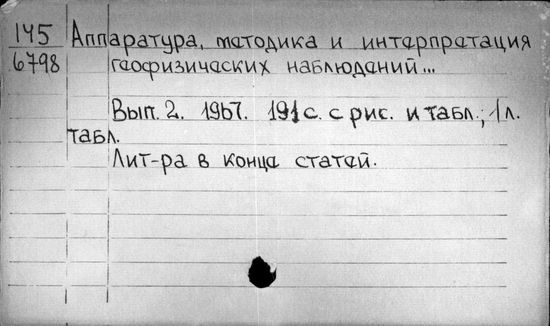 145
6798
Аппаратура, методика и интерпретация
геофизических наблюдений...
Вып. 2. 1967. 191 с. с рис. и табл.; 1 л.
табл.
Лит-ра в конце статей.